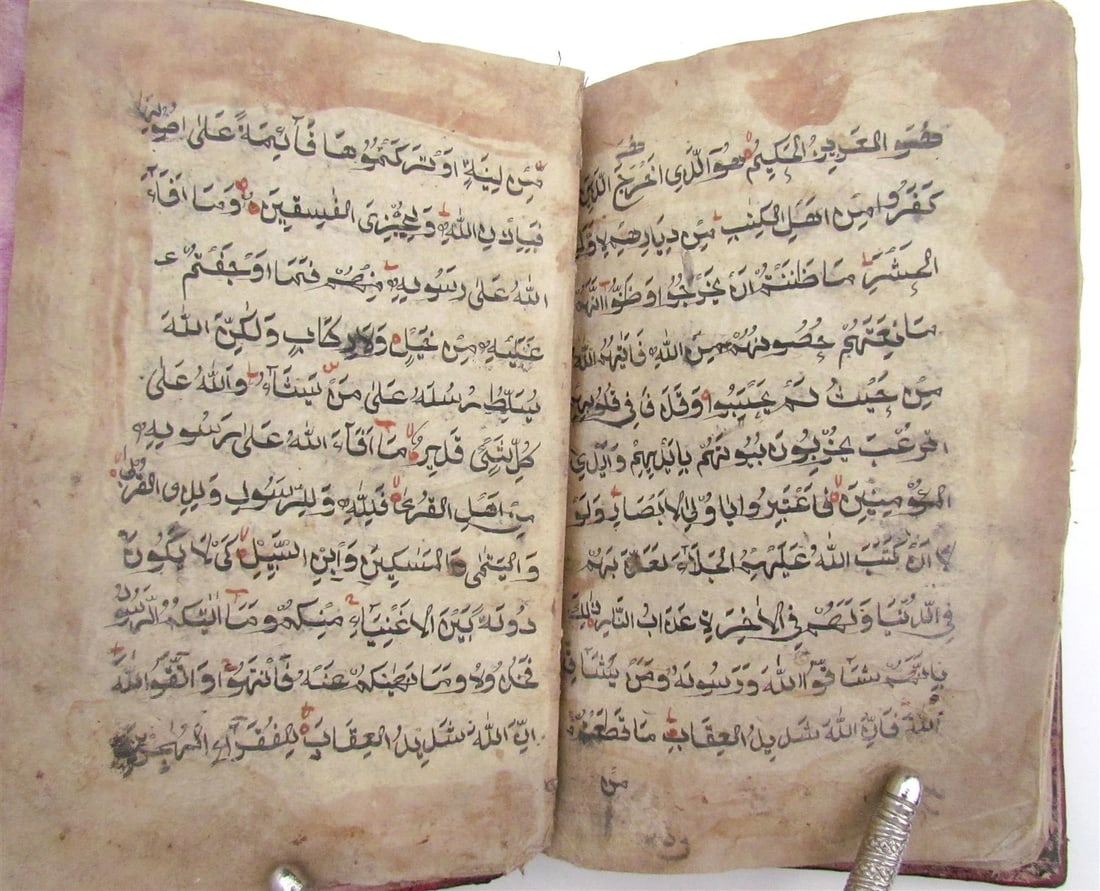 وهو العزيز الحكيم هو الذي اخرج الذين
كفروا من اهل الكتب من ديارهم لاول
الحشر ما ظننتم ان يخرجوا وظنوا انهم
ما نعتهم حصونهم من الله فاتهم الله
من حيث لم يحتسبوا وقذف في قلوبهم
الرعب يخربون بيوتهم بايديهم وايدي
المؤمنين فاعتبروا ياولي الابصار ولو
لا ان كتب الله عليهم الجلاء لعذبهم
في الدنيا ولهم في الاخرة عذاب النار ذلك
بانهم شاقوا الله ورسوله ومن يشاق
الله فان الله شديد العقاب ما قطعتم
من
من لينة او تركتموها قائمة على اصولها
فباذن الله وليخزي الفسقين وما افاء
الله على رسوله منهم فما اوجفتم
عليه من خيل ولا ركاب ولكن الله
يسلط رسله على من يشاء والله على
كل شئ قدير ما افاء الله على رسوله
من اهل القرى فلله وللرسول ولذي القربى
واليتمى والمسكين وابن السبيل كى لا يكون
دولة بين الاغنياء منكم وما اتيكم الرسول
فخذوه وما نهيكم عنه فانتهوا واتقوا الله
ان الله شديد العقاب للفقراء المهجرين